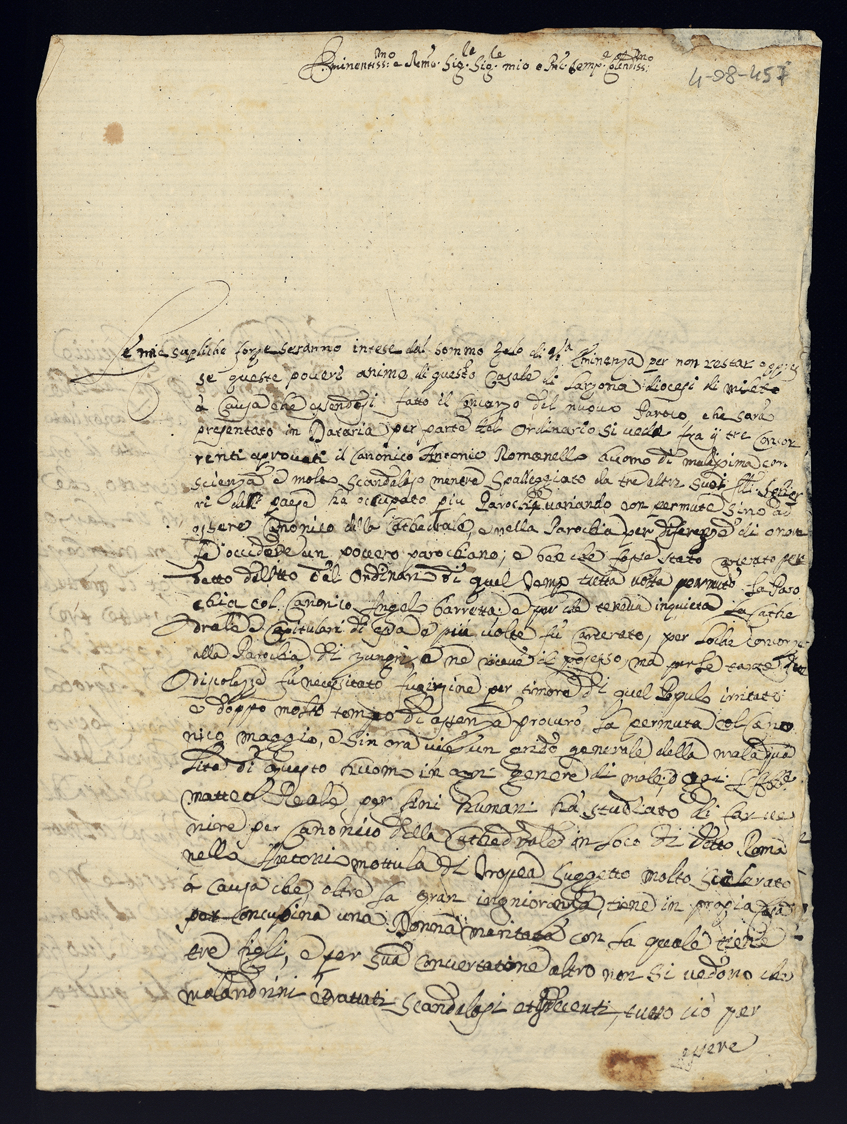 Eminentiss:mo e Rmo Sig.le Sig.le mio e Pne semp.e Colendiss:mo
4-98-457
Le mie supliche forse seranno intese dal sommo zelo di V. Eminenza per non restar oppres
se queste poveri anime di questo Casale di Zarzona diocesi di mileto
à causa che essendosi fatto il concorzo del nuovo Paroco che sarà
presentato in Dataria per parte del Ordinario si vede fra ii tre concor
renti aprovati il Canonico Antonio Romanello huomo di malissima con
scienza e molto scandaloso mentre spalleggiato da tre altri suoi
ri dell' paese ha occupato più Parochie variando con permute sino ad
essere Canonico della Cathedrale, e nella Parochia per diferenza di
fè occidere un povero parochiano; e benche fosse stato carcerato per
detto delitto del Ordinari di quel temp tutta volta permutò la Paro
chia col Canonico Angel Barretta e per che teneva inquieta la Cathe
drale e Capitulari di essa e più volte fù carcerato, per loche concorse
alla Parochia di Zungri, e ne ricevè il possesso, ma per le tante
Dispolezze fù necessitato fugirsine per timore di quel Populo irritato
e doppo molto tempo di assenza procurò la permuta col Cano
nico maggio, e sin ora vi è un grido generale della mala qua
lità di questo huomo in ogni genere di
matteo Reale per fini humani ha studiato di far ve
nire per Canonico della Cathedrale in loco di detto Roma
nello Antoni mottula di Tropea suggetto molto scelerato
à causa che oltre la gran ingnioranza, tiene in propia casa
per concupina una Donna maritata con la quale tiene
tre figli, e per sua convertatione altro non si vedono che
malandrini e trattati scandalosi et indecenti, tutto ciò per
essere